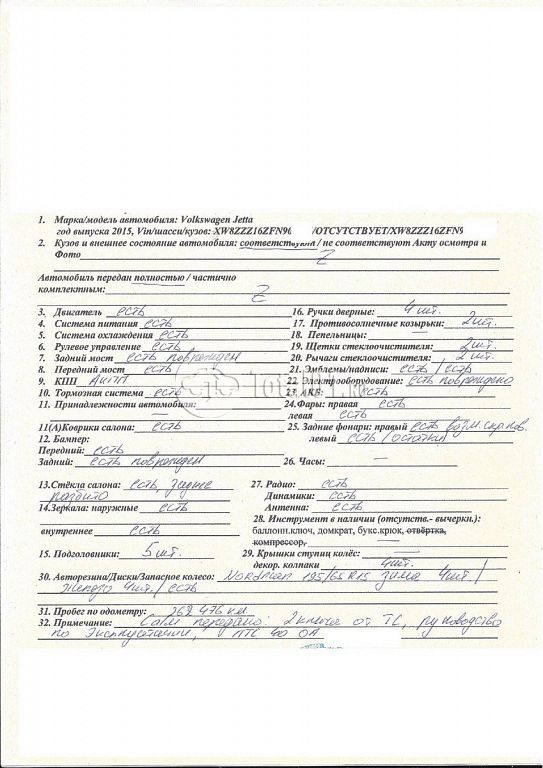 1. Марка/модель автомобиля: Volkswagen Jetta
год выпуска 2015, Vin/шасси/кузов: XW8ZZZ16ZFN96 /ОТСУТСТВУЕТ/XW8ZZZ16ZFN9
2. Кузов и внешнее состояние автомобиля: соответствуют / не соответствуют Акту осмотра и
Фото Z
Автомобиль передан полностью / частично
комплектным: Z
3. Двигатель есть
4. Система питания есть
5. Система охлаждения есть
6. Рулевое управление есть
7. Задний мост есть поврежден
8. Передний мост есть
9. КПП АКПП
10. Тормозная система есть
11. Принадлежности автомобиля: —
11(А)Коврики салона: есть
12. Бампер:
Передний: есть
Задний: есть поврежден
13.Стёкла салона: есть заднее
разбито
14.Зеркала: наружные есть
внутреннее есть
15. Подголовники: 5 шт.
16. Ручки дверные: 4 шт.
17. Противосолнечные козырьки: 2 шт.
18. Пепельницы: —
19. Щетки стеклоочистителя: 2 шт.
20. Рычаги стеклоочистителя: 2 шт.
21. Эмблемы/надписи: есть / есть
22. Электрооборудование: есть повреждено
23. АКБ: есть
24.Фары: правая есть
левая есть
25. Задние фонари: правый есть возм. скр. пов.
левый есть (остатки)
26. Часы: —
27. Радио: есть
Динамики: есть
Антенна: есть
28. Инструмент в наличии (отсутств.- вычеркн.):
баллонн.ключ, домкрат, букс.крюк, отвёртка,
компрессор, —
29. Крышки ступиц колёс: —
декор. колпаки 4 шт.
30. Авторезина/Диски/Запасное колесо: Nordman 195/65 R15 зима 4 шт /
4 шт. / есть
31. Пробег по одометру: 262 476 км
32. Примечание: передано: 2 ключа от ТС, руководство
по эксплуатации, ПТС